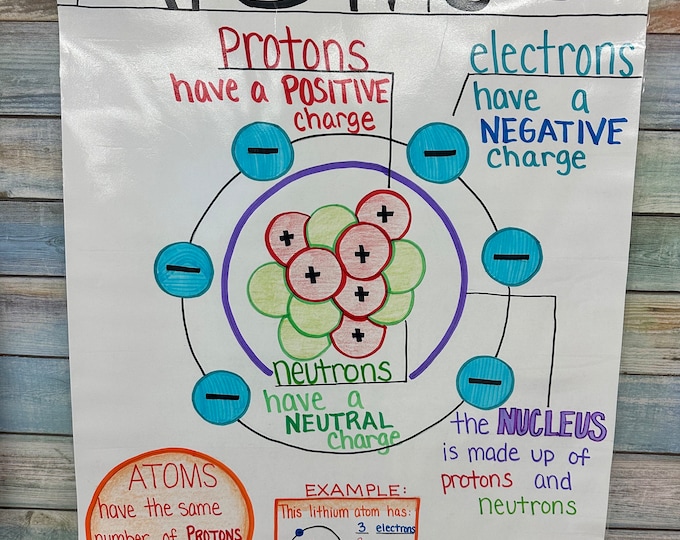 Protons
have a POSITIVE
charge
electrons
have a
NEGATIVE
charge
neutrons
have a
NEUTRAL
charge
the NUCLEUS
is made up of
protons and
neutrons
ATOMS
have the same
number of PROTONS
EXAMPLE:
This lithium atom has:
3 electrons